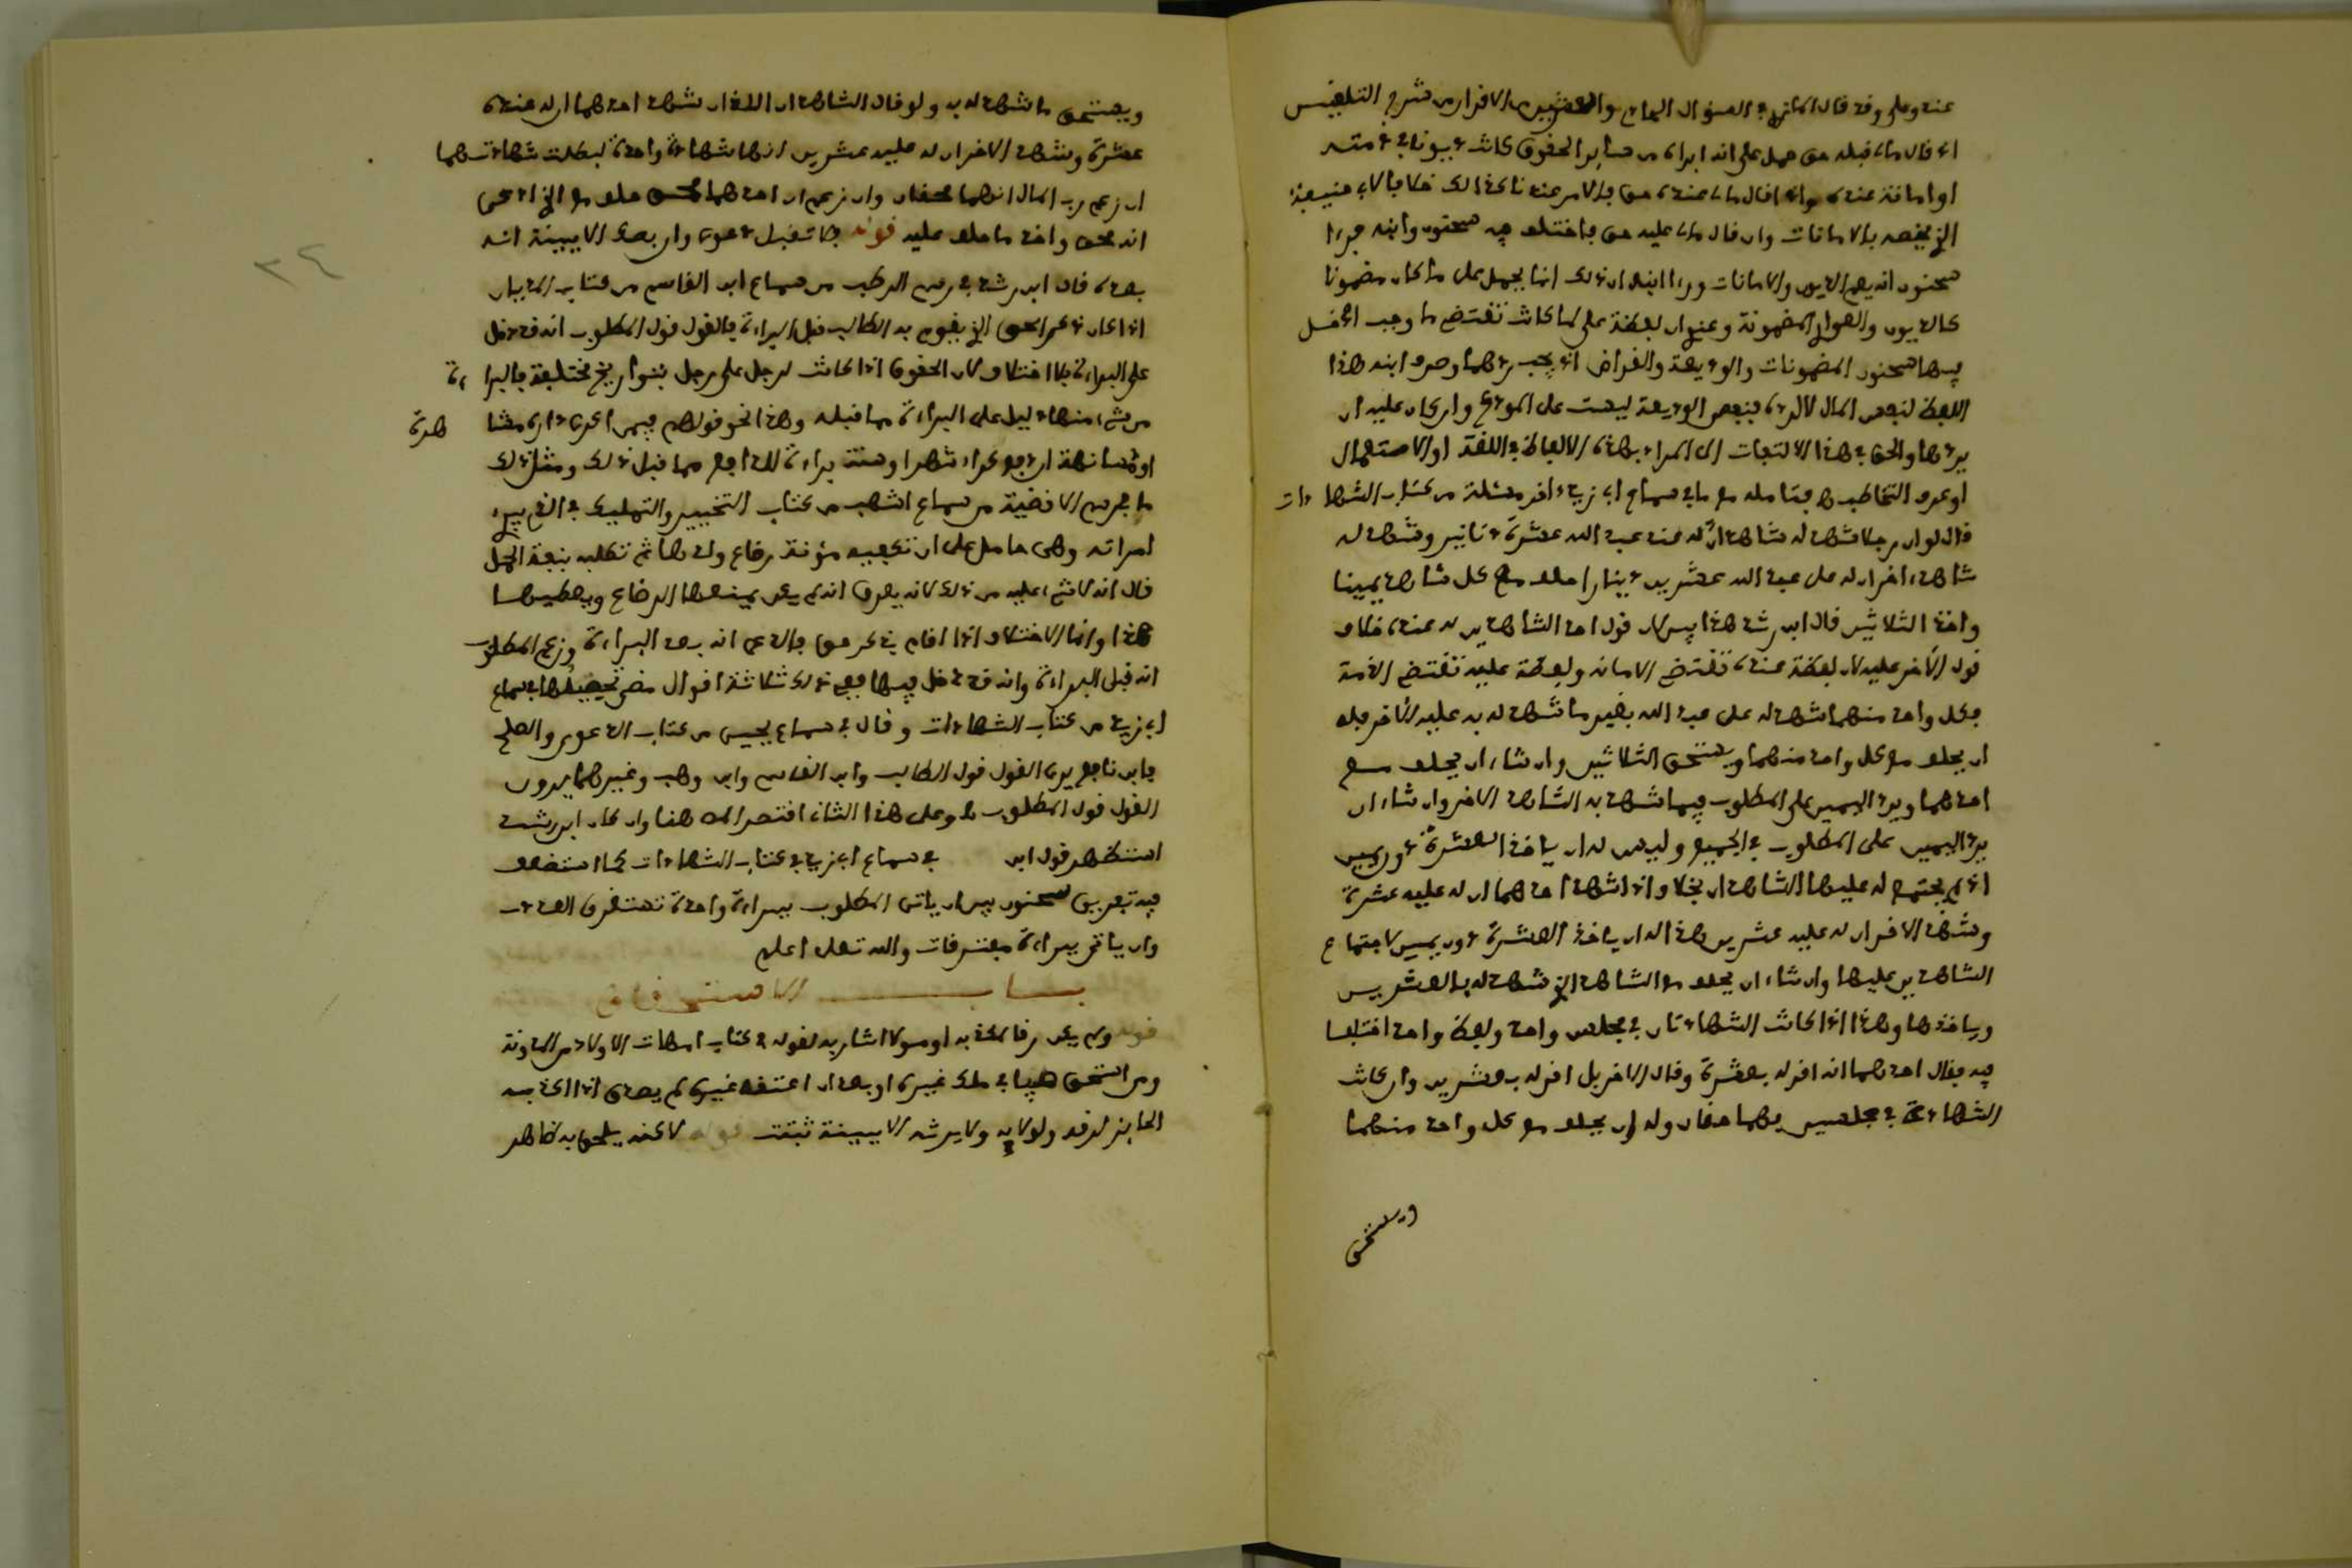 عنه وعلى وقد قال المازري في السؤال السابع والعشرين من الاقرار من شرح التلقين
اذا قال ما لي قبله حق حمل على انه ابراه من سائر الحقوق كانت ديونا في ذمته
او امانة عنده واذا قال ما لي عنده حق فالامر عندنا كذلك خلافا لابي حنيفة
الذي يخصه بالامانات وان قال ما لي عليه حق فاختلف فيه سحنون وابنه فرءا
سحنون انه يعم الديون والامانات ورءا ابنه ان ذلك انما يحمل على ما كان مضمونا
كالديون والعواري المضمونة وعنوان لفظة على لما كانت تقتضي ما وجب ادخل
فيها سحنون المضمونات والوديعة والقراض اذ يجب ردهما وصرف ابنه هذا
اللفظ لنفس المال لا لرده فنفس الوديعة ليست على المودع وان كان عليه ان
يردها والحق في هذا الالتفات الى المراد بهذه الالفاظ في اللغة او الاستعمال
او عرف التخاطب فتامله مع ما في سماع ابي زيد ءاخر مسئلة من كتاب الشهادات
قال لو ان رجلا شهد له شاهد ان له عند عبد الله عشرة دنانير وشهد له
شاهد ءاخر ان له على عبد الله عشرين دينارا حلف مع كل شاهد يمينا
واخذ الثلاثين قال ابن رشد هذا بين لان قول احد الشاهدين له عنده خلاف
قول الآخر عليه لان لفظة عنده تقتضي الامانة ولفظة عليه تقتضي الذمة
فكل واحد منهما شهد له على عبد الله بغير ما شهد له به عليه الآخر فله
ان يحلف مع كل واحد منهما ويستحق الثلاثين وان شاء ان يحلف مع
احدهما ويرد اليمين على المطلوب فيما شهد به الشاهد الاخر وان شاء ان
يرد اليمين على المطلوب في الجميع وليس له ان ياخذ العشرة دون يمين
اذ لم يجتمع له عليها الشاهدان بخلاف اذا شهد احدهما ان له عليه عشرة
وشهد الاخر ان له عليه عشرين هذا له ان ياخذ العشرة دون يمين لاجتماع
الشاهدين عليها وان شاء ان يحلف مع الشاهد الذي شهد له بالعشرين
وياخذها وهذا اذا كانت الشهادتان في مجلس واحد ولفظ واحد اختلفا
فيه فقال احدهما انه اقر له بعشرة وقال الاخر بل اقر له بعشرين وان كانت
الشهادة في مجلسين فهما حقان وله ان يحلف مع كل واحد منهما
ويستحق
ويستحق ما شهد له به ولو قال الشاهدان اللذان شهد احدهما ان له عنده
عشرة وشهد الاخر ان له عليه عشرين انها شهادة واحدة لبطلت شهادتهما
ان زعم رب المال انهما حقان وان زعم ان احدهما حلف مع الذي ادعى
انه حق واخذ ما حلف عليه قوله فلا تقبل دعوى وان بصك الا ببينة انه
بعده قال ابن رشد في رسم الرطب من سماع ابن القاسم من كتاب المديان
اذا كان ذكر الحق الذي يقوم به الطالب قبل البراءة فالقول قول المطلوب انه قد دخل
على البراءة بلا اختلاف لان الحقوق اذا كانت لرجل على رجل بتواريخ مختلفة فالبراءة
من شيء منها دليل على البراءة مما قبله وهذا نحو قولهم فيمن اكرى داره مشاهرة
او مسانهة ان دفع كراء شهر او سنة براءة للدافع مما قبل ذلك ومثل ذلك
ما في رسم الاقضية من سماع اشهب من كتاب التخيير والتمليك في الذي يبرئ
امراته وهي حامل على ان تكفيه مؤنة رضاع ولدها ثم تطلبه بنفقة الحمل
قال انه لا شيء عليه من ذلك لانه يعرف انه لم يكن يمنعها الرضاع ويعطيها
هذا وانما الاختلاف اذا اقام ذكر حق فادعى انه بعد البراءة وزعم المطلوب
انه قبل البراءة وانه قد دخل فيها ففي ذلك ثلاثة اقوال مضى تحصيلها في سماع
ابي زيد من كتاب الشهادات وقال في سماع يحيى من كتاب الدعوى والصلح
فابن نافع يرى القول قول الطالب وابن القاسم وابن وهب وغيرهما يرون
القول قول المطلوب وعلى هذا الثاني اقتصر المص هنا وان كان ابن رشد
استظهر قول ابن في سماع ابي زيد في كتاب الشهادات كما استضعف
فيه تفريق سحنون بين ان ياتي المطلوب ببراءة واحدة تستغرق العدد
وان ياتي ببراءة مفترقات والله تعلى اعلم
باب الاستلحاق
قوله ولم يكن رقا لمكذبه او مولا اشار به لقوله في كتاب امهات الاولاد من المدونة
ومن استلحق صبيا في ملك غيره او بعد ان اعتقه غيره لم يصدق اذا اكذبه
الحائز لرقه ولولائه ولا يرثه الا ببينة ثبتت قوله لاكنه يلحق به ظاهر
٢٤